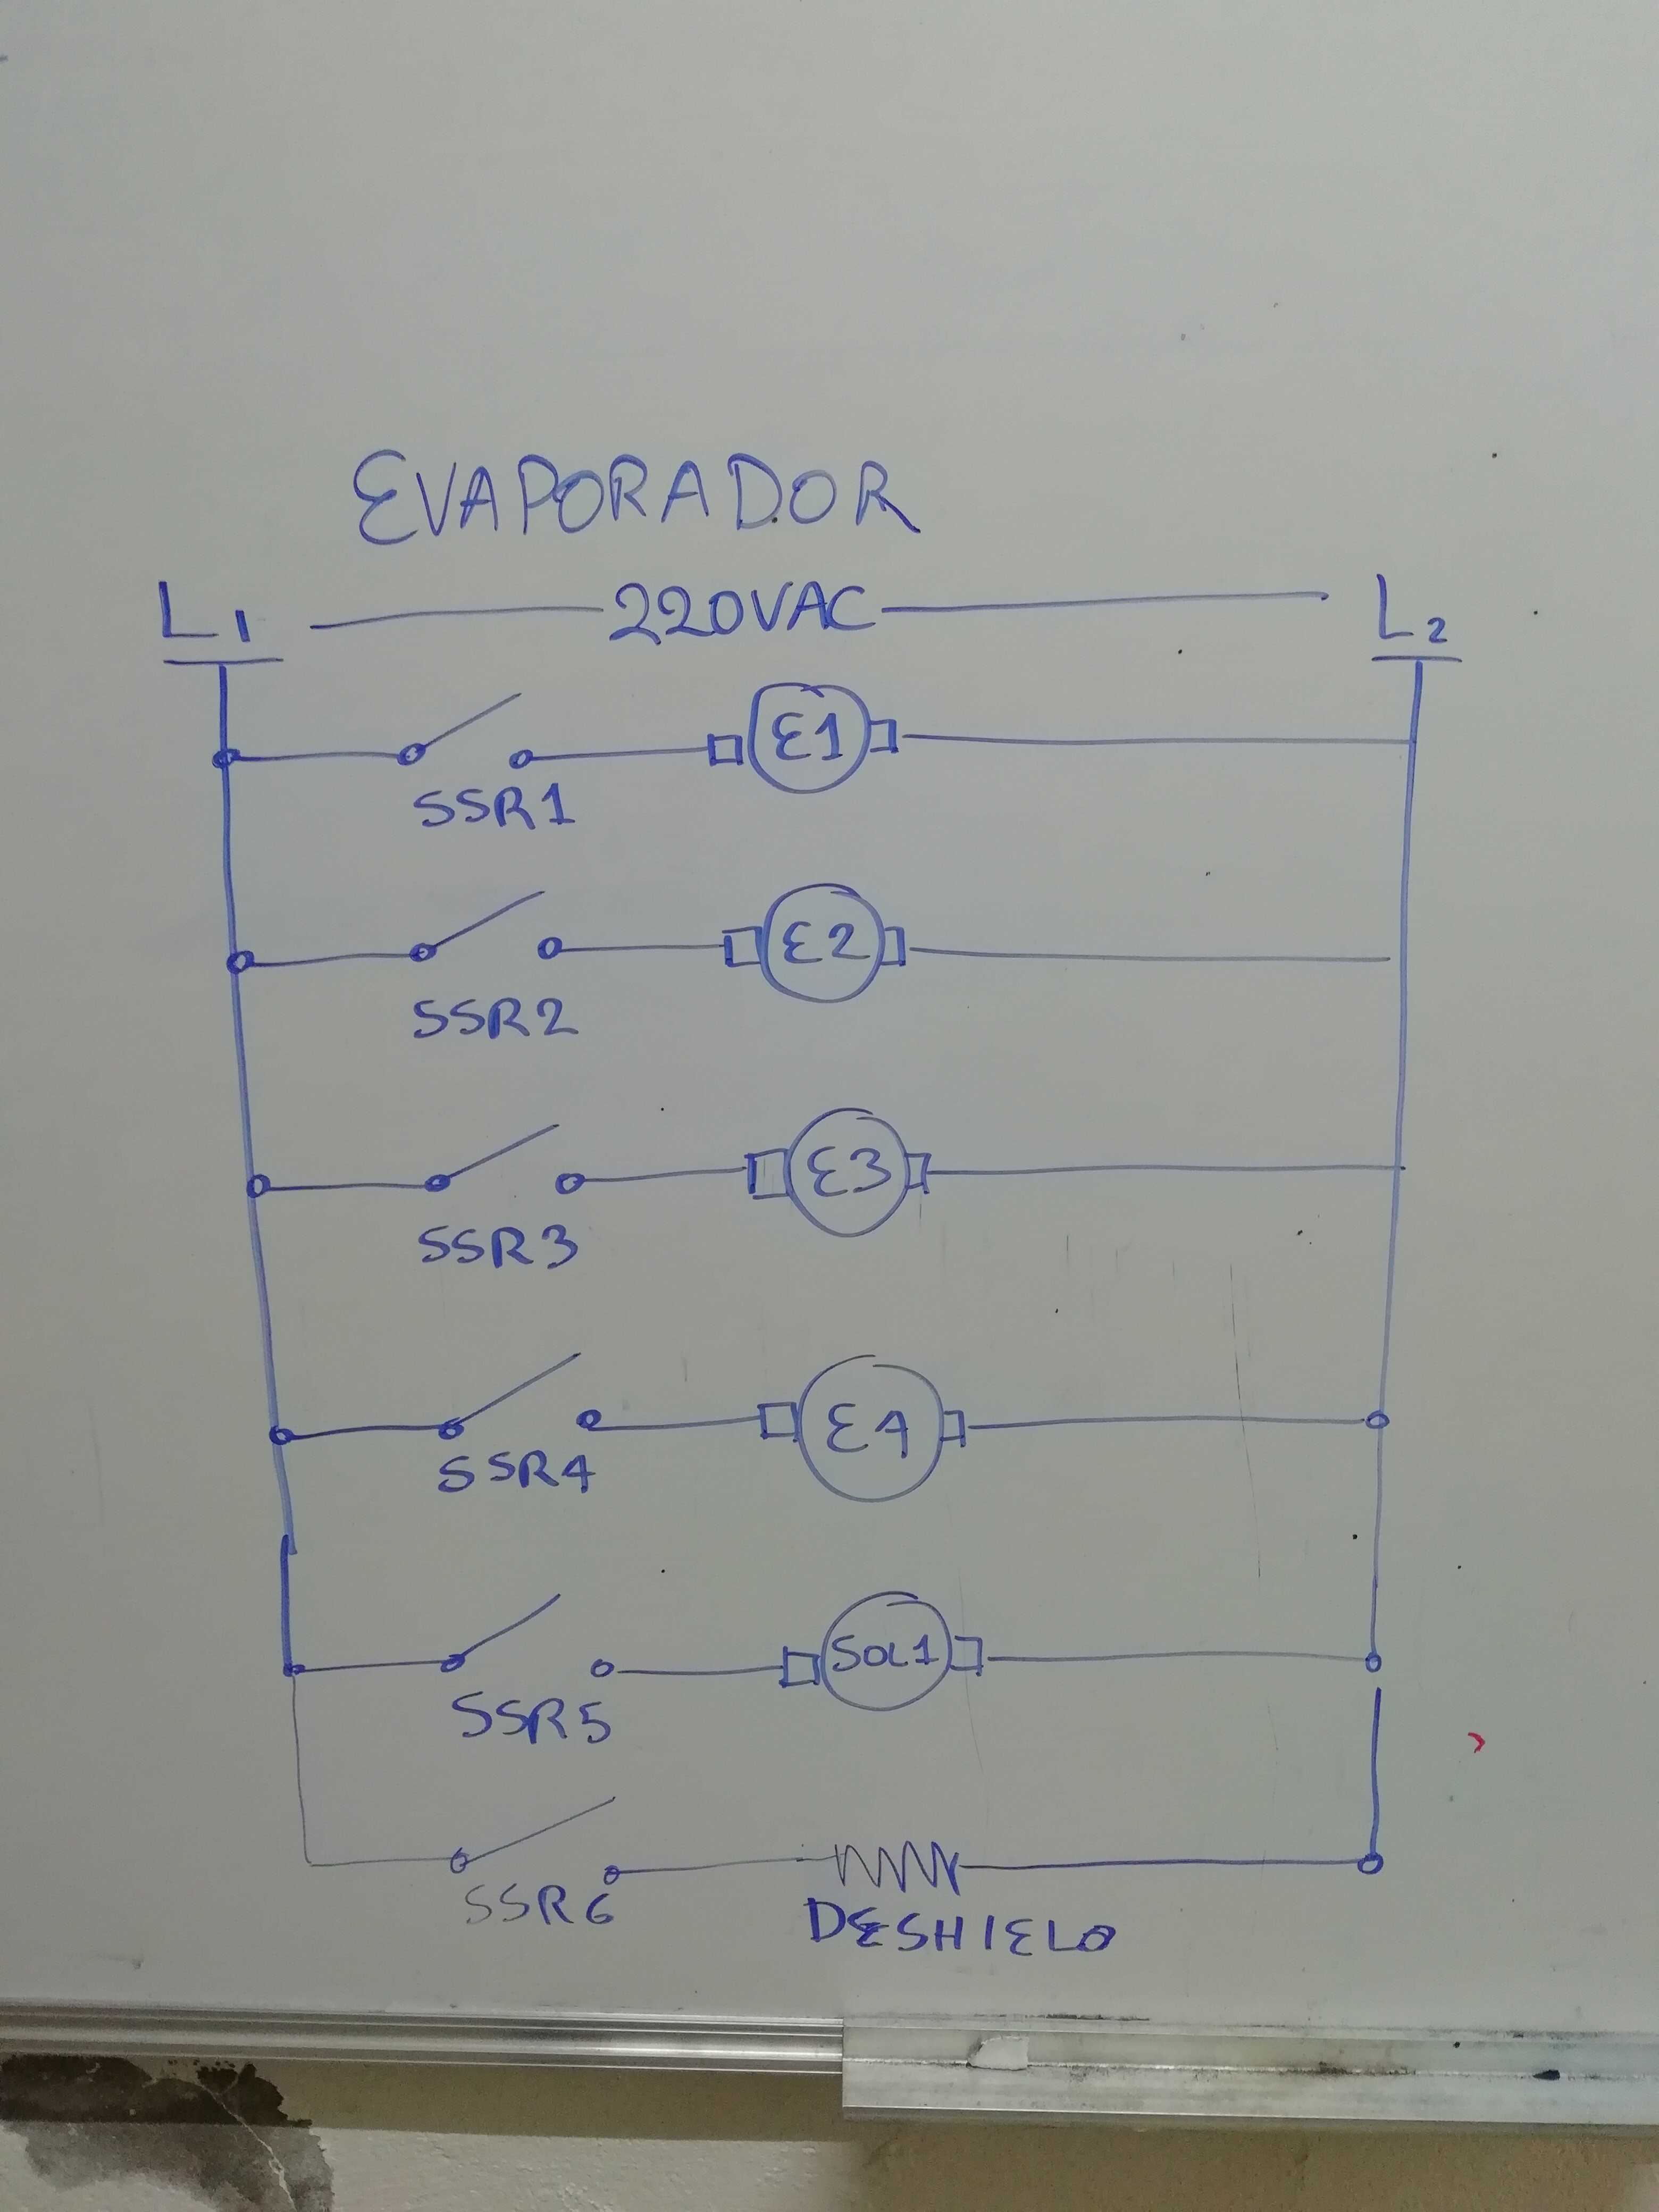 EVAPORADOR
L1 220VAC L2
E1
SSR1
E2
SSR2
E3
SSR3
E4
SSR4
SOL1
SSR5
SSR6
DESHIELO